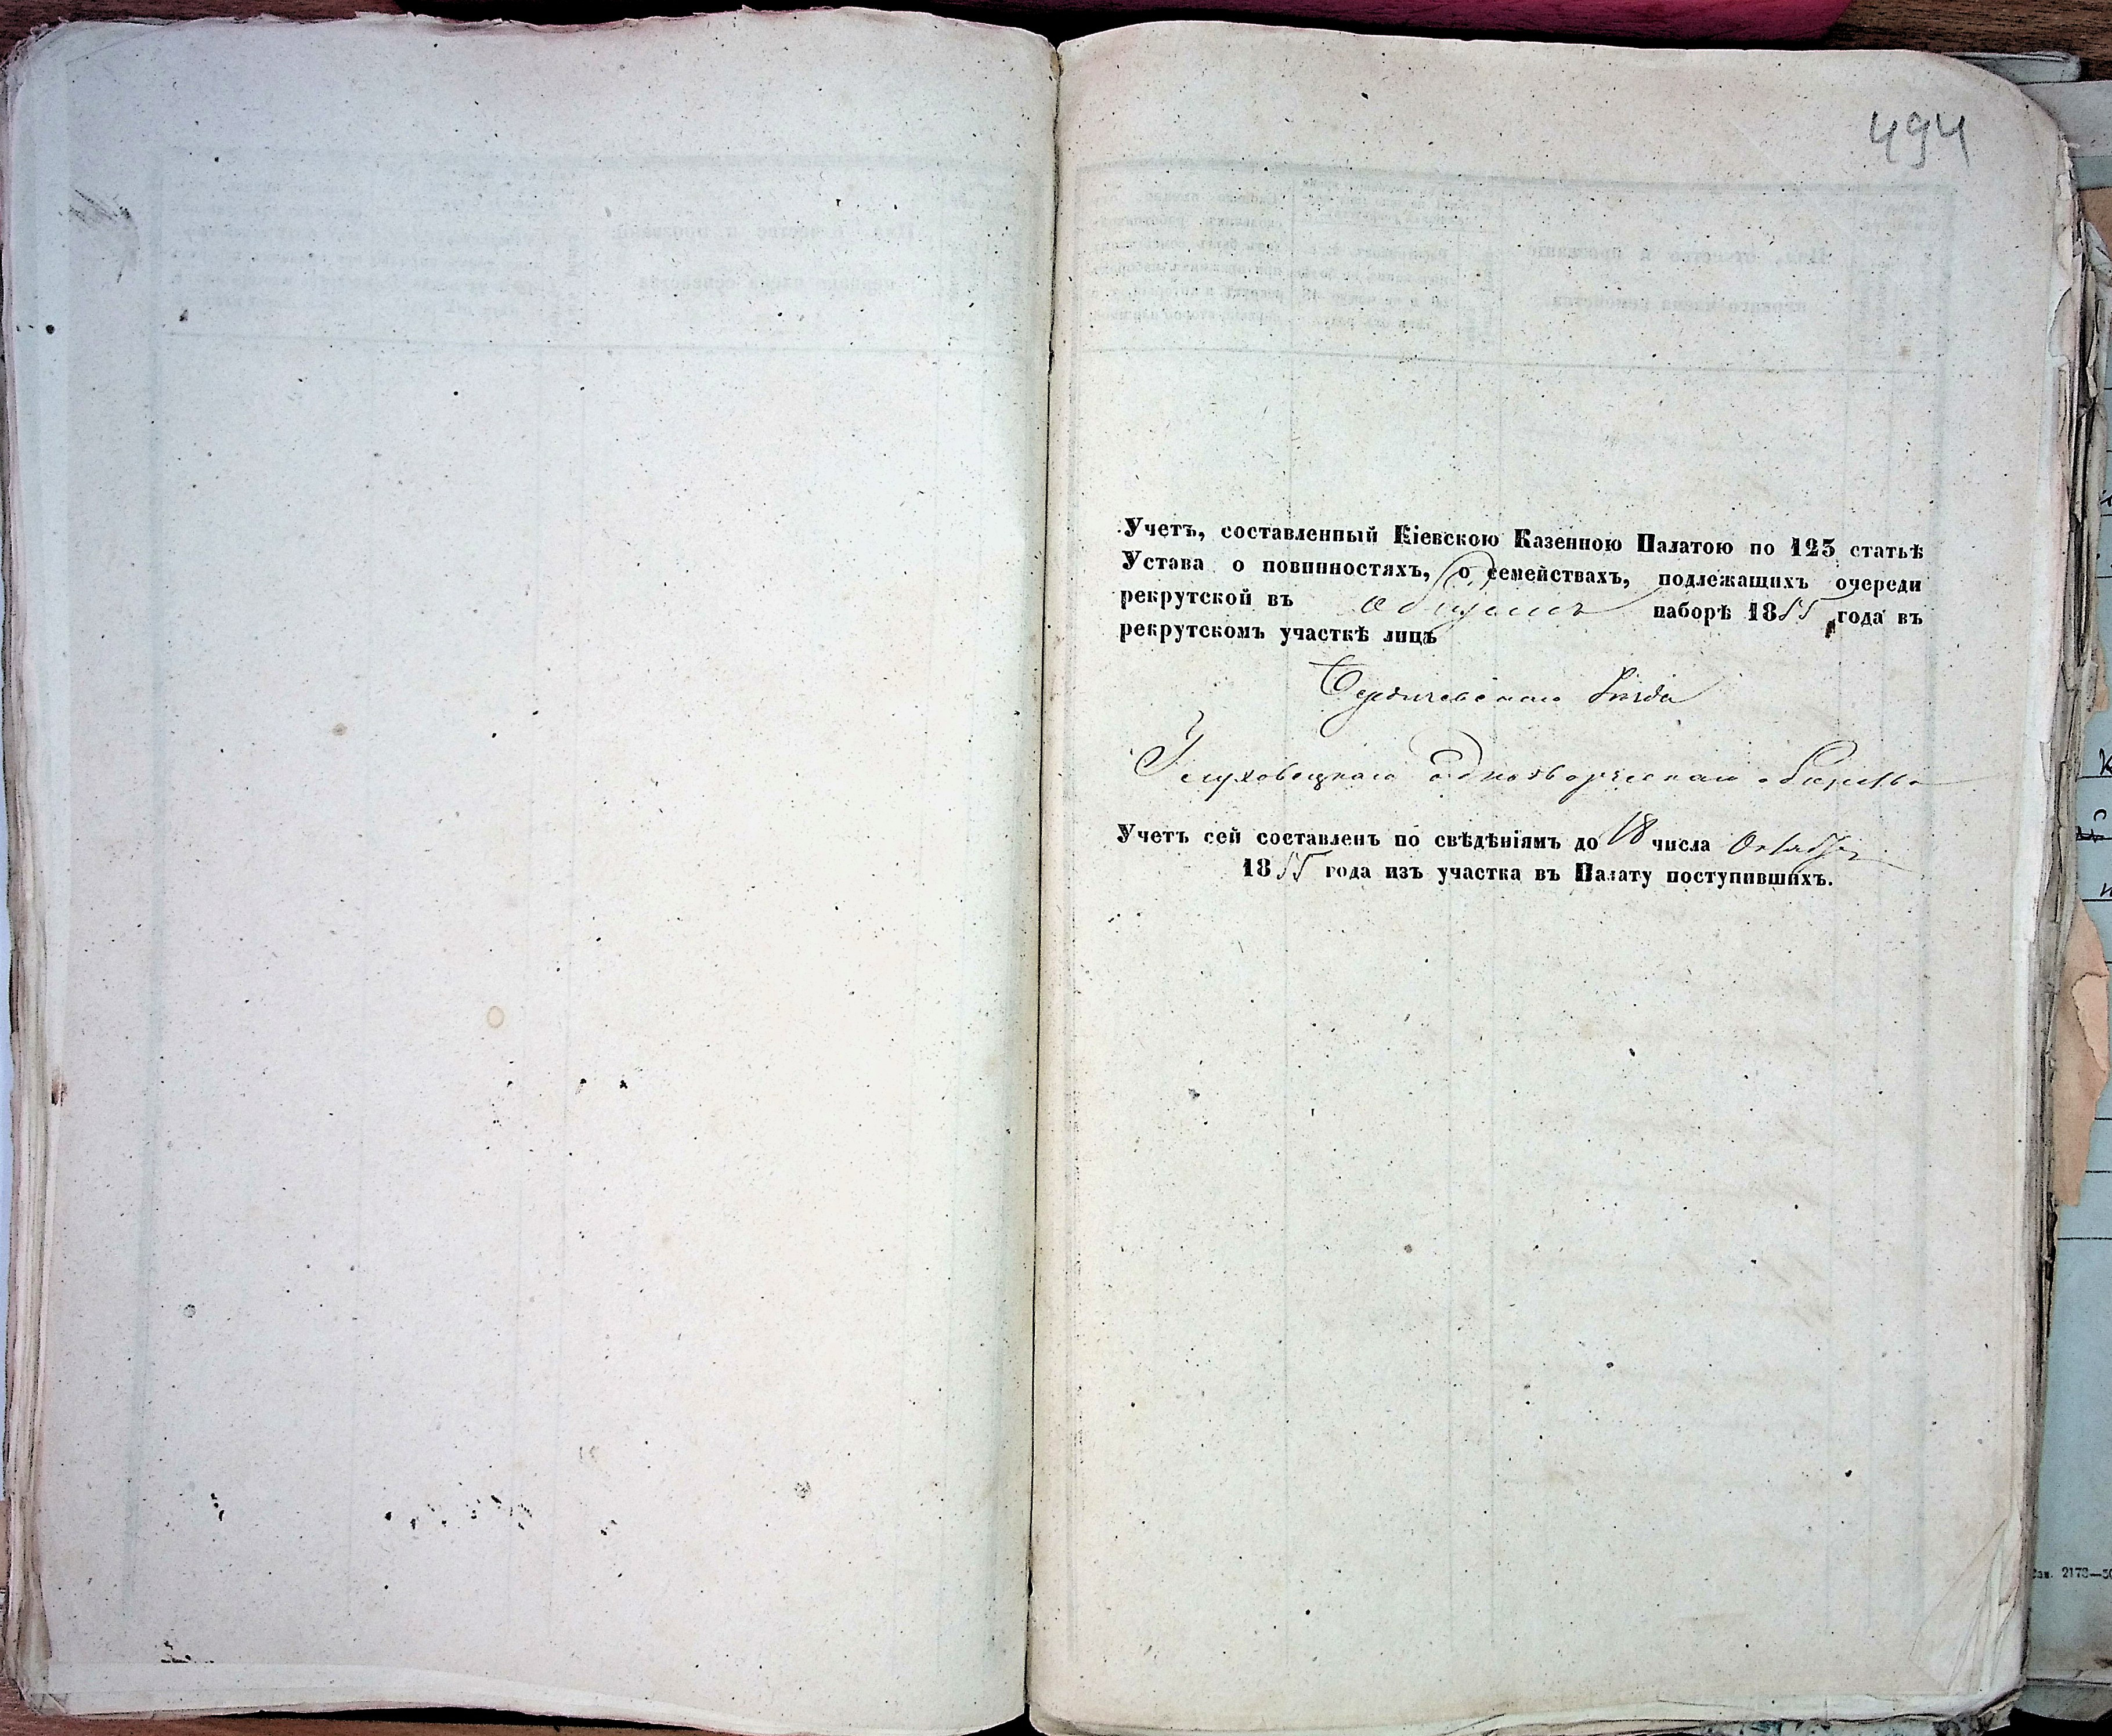 494
Учетъ, составленный Кіевскою Казенною Палатою по 125 статьѣ
Устава о повинностяхъ, о семействахъ, подлежащихъ очереди
рекрутской въ общемъ наборѣ 1855 года въ
рекрутскомъ участкѣ лицъ
Бердичевскаго Уѣзда
Глуховецкаго однодворческаго общества
Учетъ сей составленъ по свѣдѣніямъ до 18 числа Октября
1855 года изъ участка въ Палату поступившихъ.